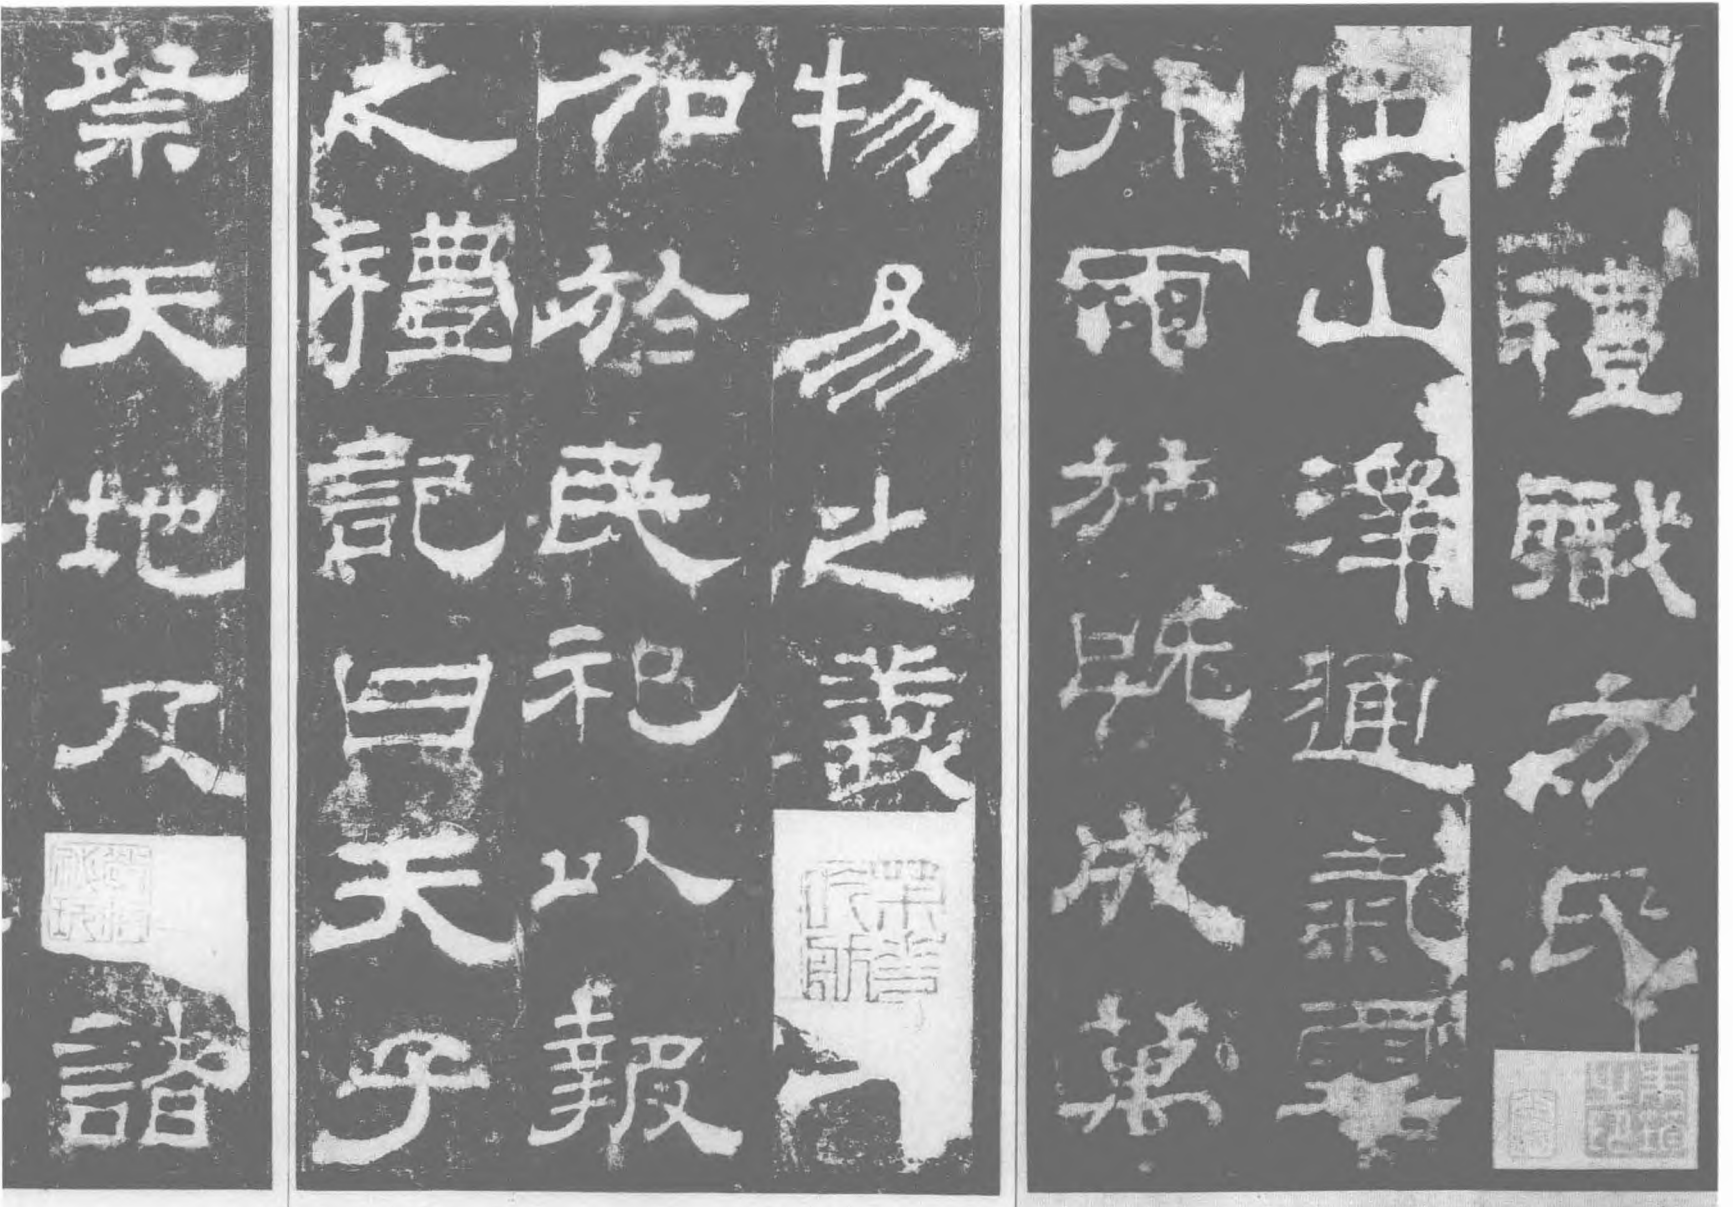 周禮職方氏
位山澤通氣雲
行雨施既成萬
物易之義
加於民祀以報
之禮記曰天子
祭天地及諸